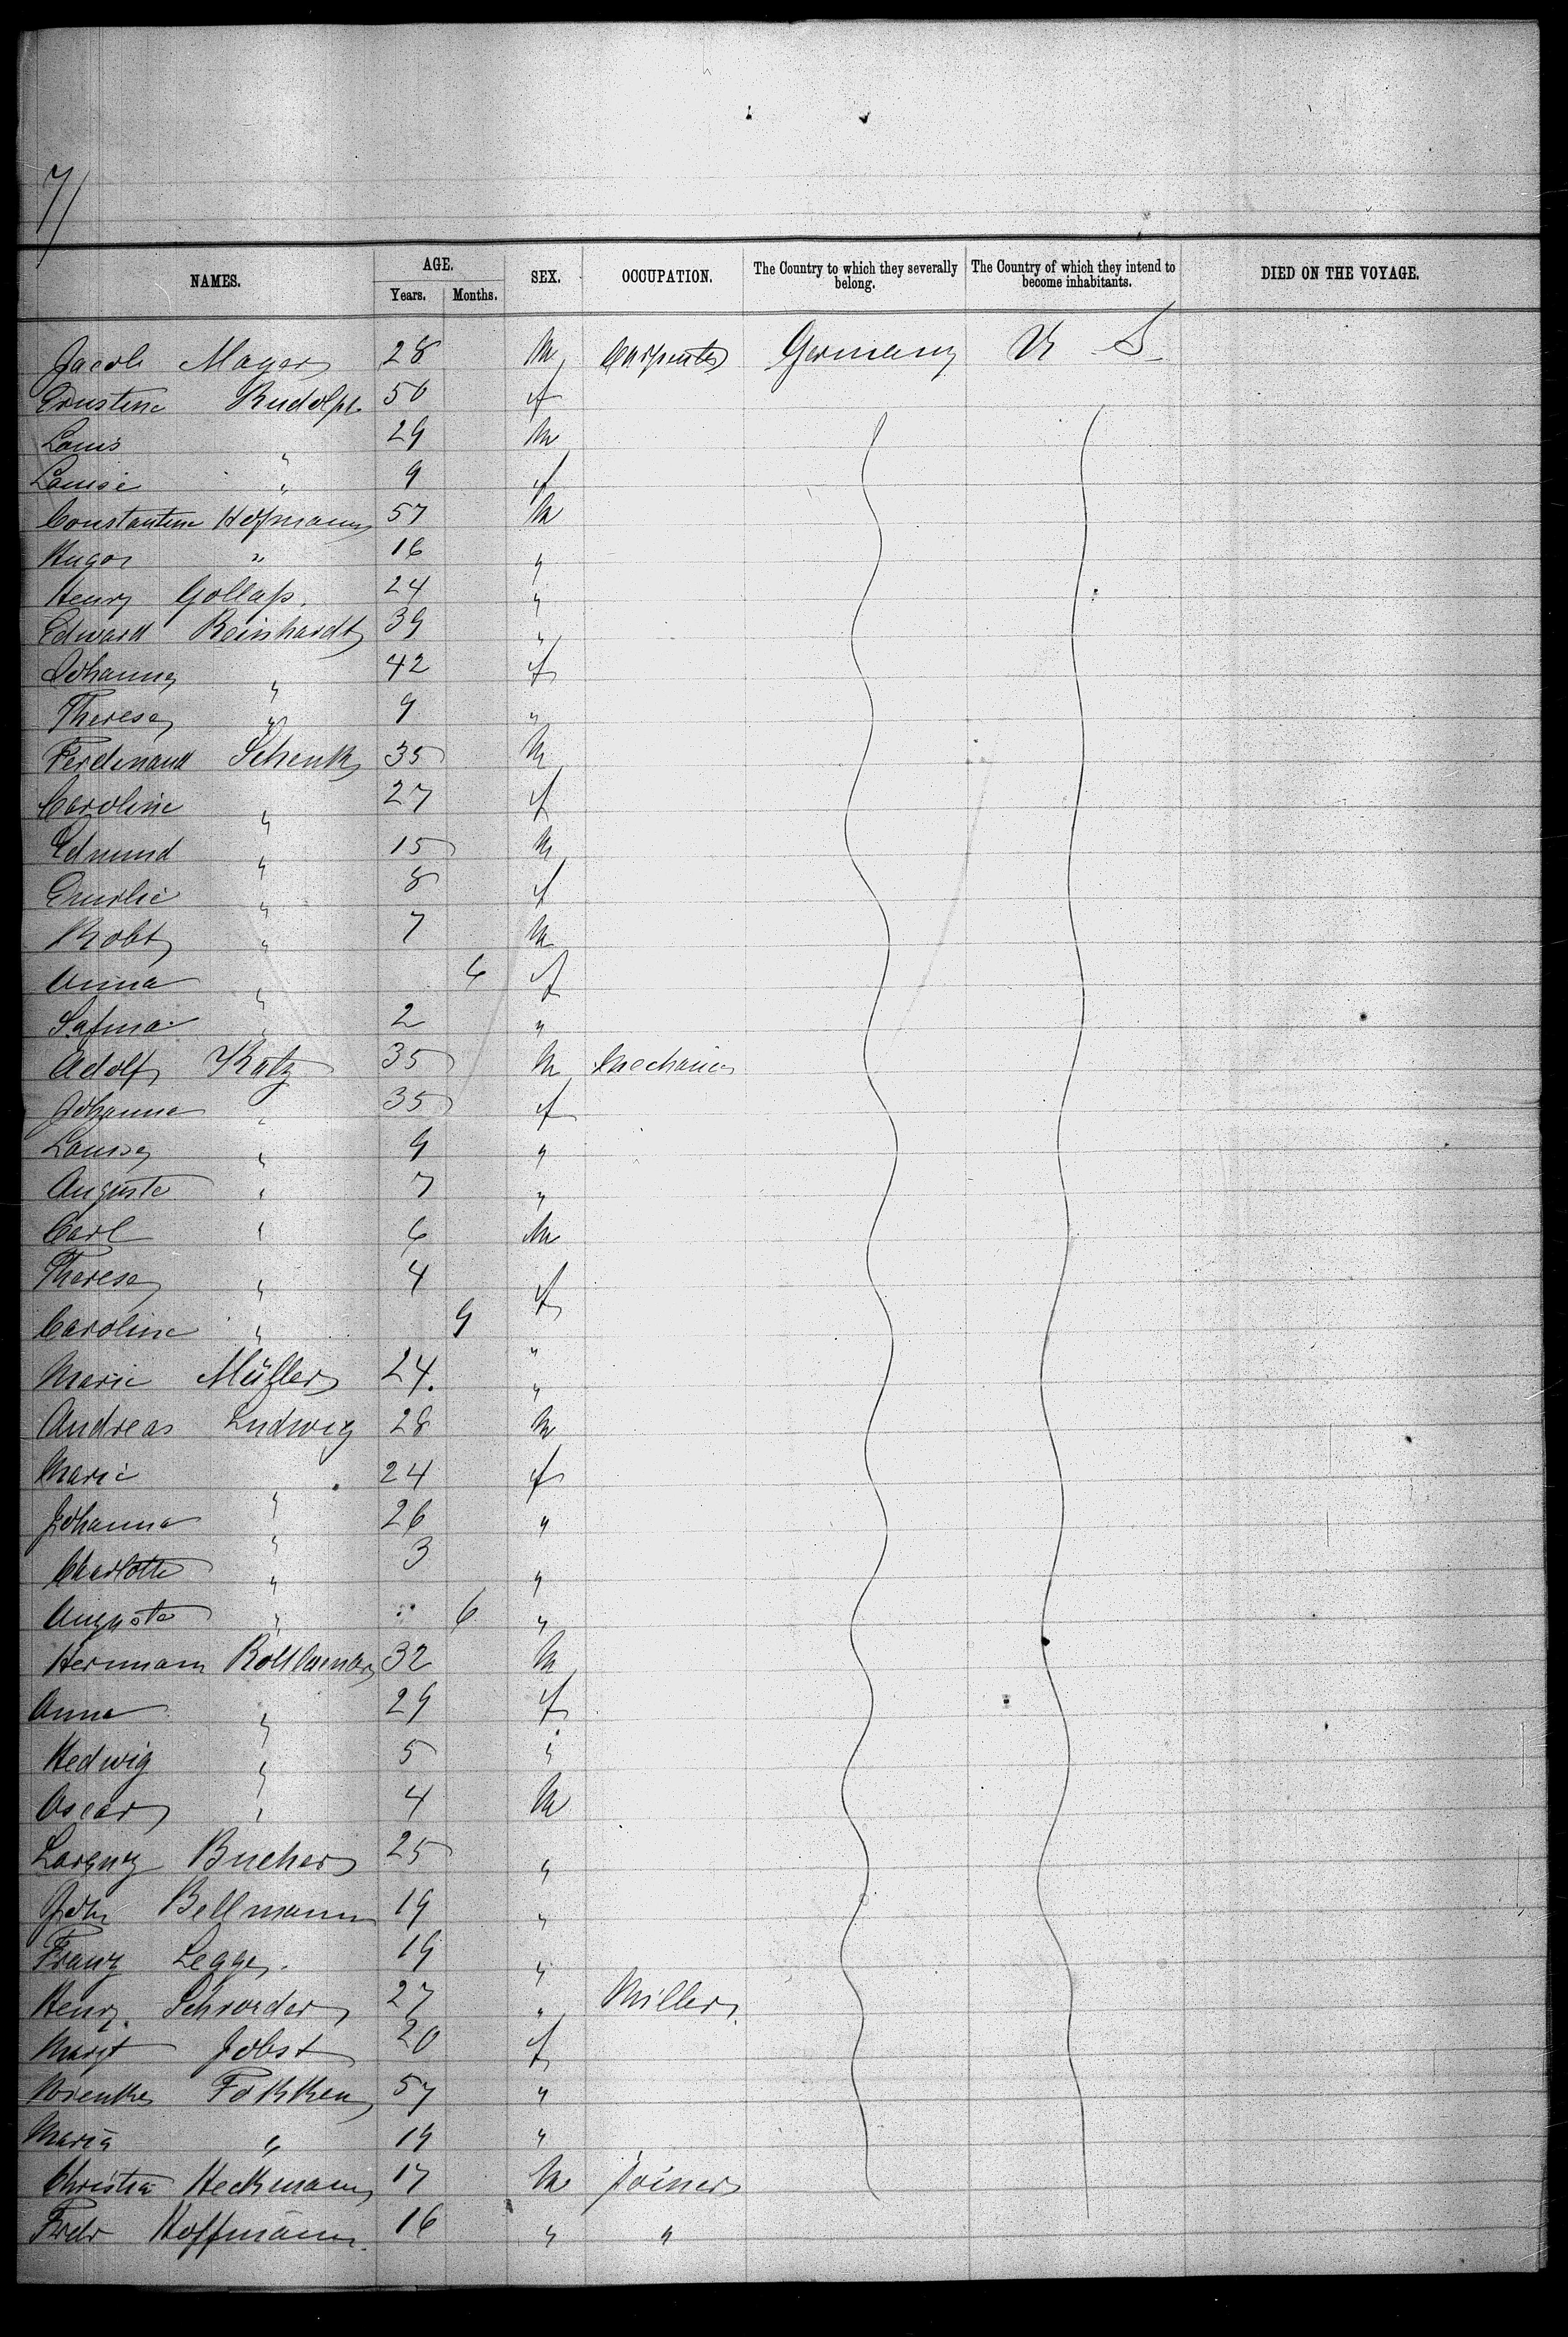 7/
NAMES. AGE. SEX. OCCUPATION. The Country to which they severally belong. The Country of which they intend to become inhabitants. DIED ON THE VOYAGE.
Years. Months.
Jacob Mayer 28 m Carpenter Germany U S
Ernstine Rudolph 50 f
Louis " 29 m
Louise " 9 f
Constantin Hofmann 57 m
Hugo " 16 "
Henry Gollass. 24 "
Edward Reinhardt 39 "
Johanna " 42 f
Therese " 9 "
Ferdinand Schenk 35 m
Caroline " 27 f
Edmund " 15 m
Emilie " 8 f
Robt " 7 m
Anna " 6 f
" 2 "
Adolf Katz 35 m mechanic
Johanna " 35 f
Louise " 9 "
Auguste " 7 "
Carl " 6 m
Therese " 4 f
Caroline " 9 "
Marie Müller 24. "
Andreas Ludwig 28 m
Marie " 24 f
Johanna " 26 "
Charlotte " 3 "
Auguste " 6 "
Hermann 32 m
Anna " 29 f
Hedwig " 5 "
Oscar " 4 m
Lorenz Bucher 25 "
John Bellmann 19 "
Franz Legge. 19 "
Henry Schroeder 27 " Miller
Margt Jobst 20 f
Fokken 57 "
Maria " 19 "
Christia Heckmann 17 m Joiner
Fredr Hoffmann. 16 " "